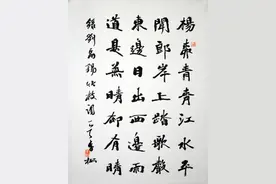 楊柳青青江水平
聞郎岸上踏歌聲
東邊日出西邊雨
道是無晴却有晴
錄劉禹錫竹枝詞